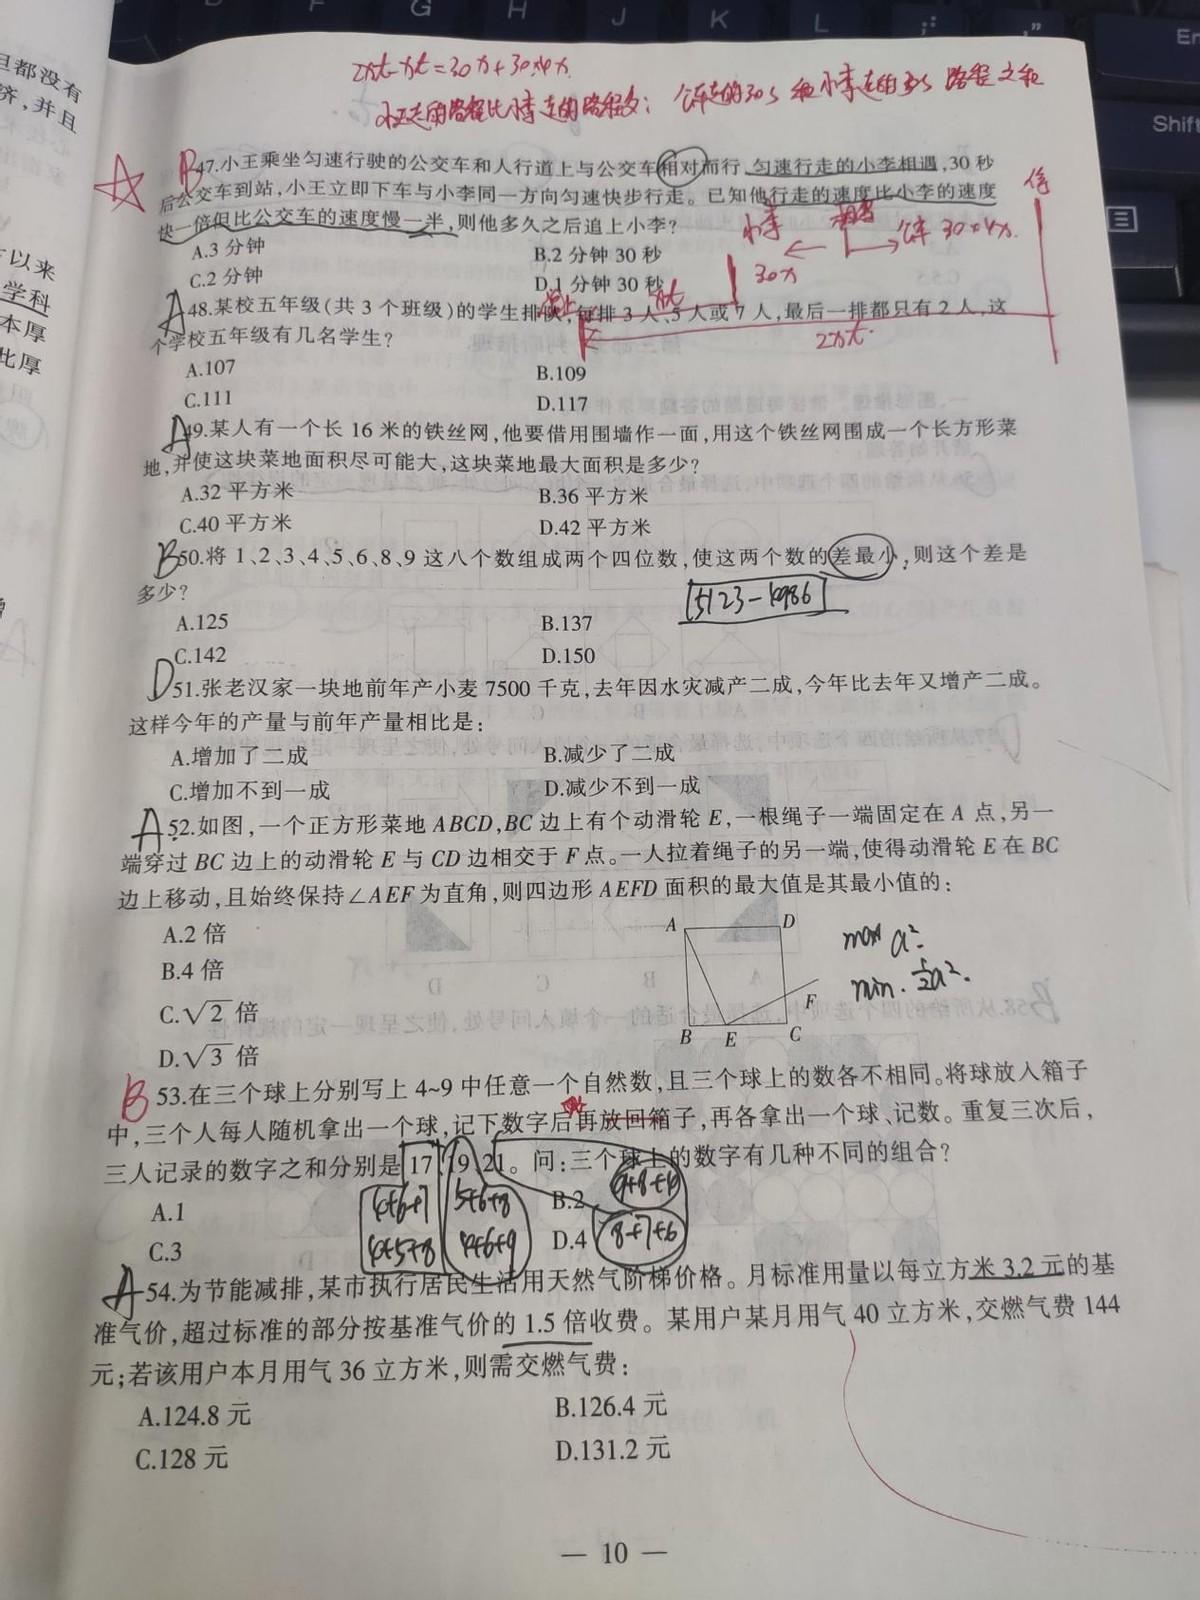 G H J K L
Shift
且都没有
济,并且
以来
学科
本厚
比厚
2xt-xt=30x+30×4x
小王走的路程比小李走的路程多:公车走的30s和小李走的30s路程之和
B47.小王乘坐匀速行驶的公交车和人行道上与公交车相对而行、匀速行走的小李相遇,30 秒
后公交车到站,小王立即下车与小李同一方向匀速快步行走。已知他行走的速度比小李的速度
快一倍但比公交车的速度慢一半,则他多久之后追上小李?
小李 相遇 公车 30×4x
A.3 分钟 B.2 分钟 30 秒
30x
C.2 分钟 D.1 分钟 30 秒
xt
A48.某校五年级(共 3 个班级)的学生排队,每排 3 人、5 人或 7 人,最后一排都只有 2 人,这
个学校五年级有几名学生?
2xt
A.107 B.109
C.111 D.117
A49.某人有一个长 16 米的铁丝网,他要借用围墙作一面,用这个铁丝网围成一个长方形菜
地,并使这块菜地面积尽可能大,这块菜地最大面积是多少?
A.32 平方米 B.36 平方米
C.40 平方米 D.42 平方米
B50.将 1、2、3、4、5、6、8、9 这八个数组成两个四位数,使这两个数的差最小,则这个差是
多少?
5123-4986
A.125 B.137
C.142 D.150
D51.张老汉家一块地前年产小麦 7500 千克,去年因水灾减产二成,今年比去年又增产二成。
这样今年的产量与前年产量相比是:
A.增加了二成 B.减少了二成
C.增加不到一成 D.减少不到一成
A52.如图,一个正方形菜地 ABCD,BC 边上有个动滑轮 E,一根绳子一端固定在 A 点,另一
端穿过 BC 边上的动滑轮 E 与 CD 边相交于 F 点。一人拉着绳子的另一端,使得动滑轮 E 在 BC
边上移动,且始终保持∠AEF 为直角,则四边形 AEFD 面积的最大值是其最小值的:
A.2 倍
B.4 倍
C.√2 倍
D.√3 倍
A D
F
B E C
max a²
min. ½a².
B 53.在三个球上分别写上 4~9 中任意一个自然数,且三个球上的数各不相同。将球放入箱子
中,三个人每人随机拿出一个球,记下数字后再放回箱子,再各拿出一个球、记数。重复三次后,
三人记录的数字之和分别是 17、19、21。问:三个球上的数字有几种不同的组合?
A.1 B.2
4+6+7 5+6+8 9+8+4
C.3 D.4
4+5+8 4+6+9 8+7+6
A 54.为节能减排,某市执行居民生活用天然气阶梯价格。月标准用量以每立方米 3.2 元的基
准气价,超过标准的部分按基准气价的 1.5 倍收费。某用户某月用气 40 立方米,交燃气费 144
元;若该用户本月用气 36 立方米,则需交燃气费:
A.124.8 元 B.126.4 元
C.128 元 D.131.2 元
— 10 —